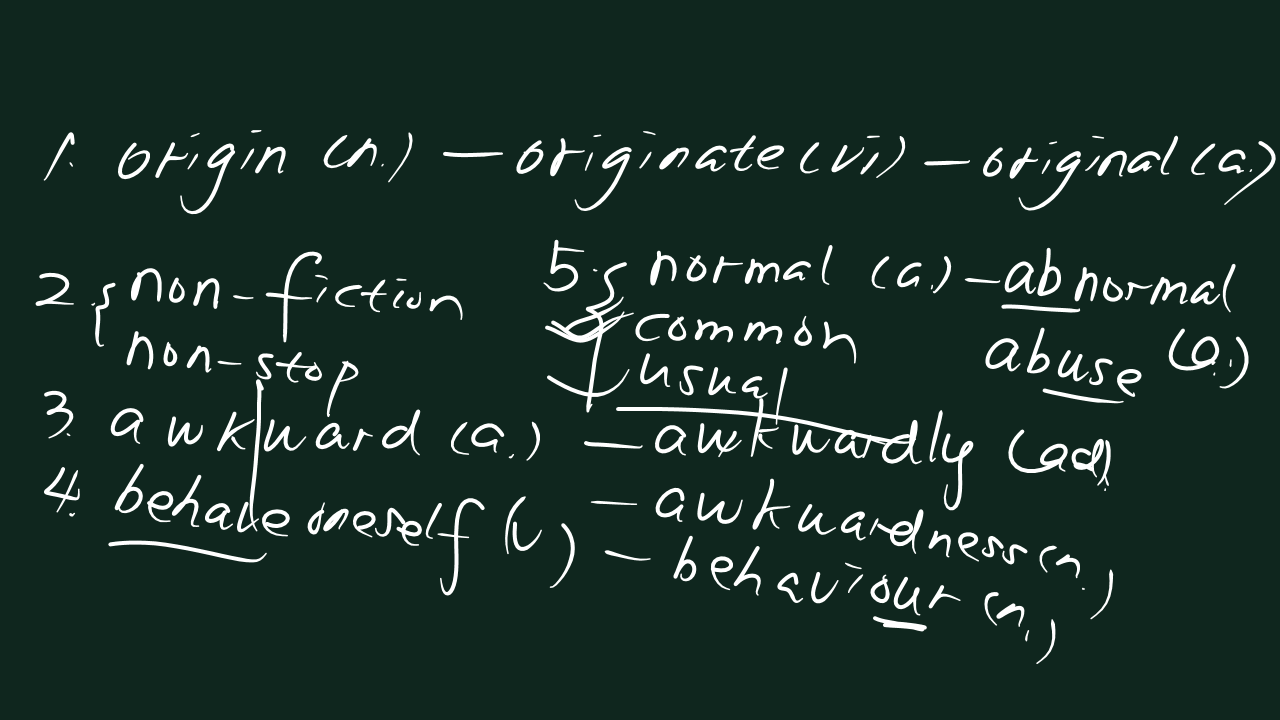 1. origin (n.) — originate (vi) — original (a.)
2. { non-fiction
non-stop
3. awkward (a.) — awkwardly (ad.)
— awkwardness (n.)
4. behave oneself (v) — behaviour (n.)
5. { normal (a.) — abnormal (a.)
common
usual
abuse